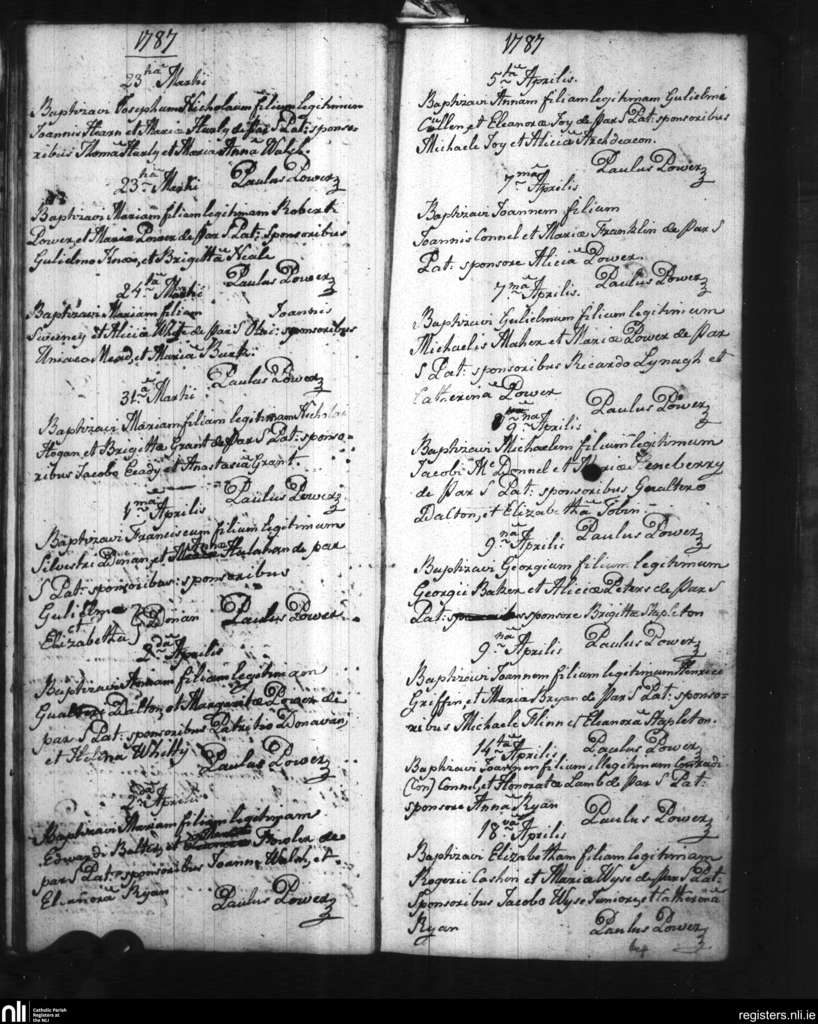 1787
23tia Martii
Baptizavi Josephum Nicholaum filium legitimum
Joannis Hearn et Maria Hurly de Par S Pat: sponso-
ribus Thoma Hurly et Maria Anna Walsh.
Paulus Power
23tia Martii
Baptizavi Mariam filiam legitimam Roberti
Power, et Mariæ Power de Par S Pat: sponsoribus
Gulielmo Knox, et Brigitta Neale
Paulus Power
24ta Martii
Baptizavi Mariam filiam Joannis
Sweeney et Alicia White de Par S sponsoribus
Mead, et Maria Burk.
Paulus Power
31a Martii
Baptizavi Mariam filiam legitimam Nicholai
Hogan, et Brigittæ Grant de Par S Pat: sponso-
ribus Jacobo Eeady et Anastasia Grant.
Paulus Power
1ma Aprilis
Baptizavi Franciscum filium legitimum
Silvestri Donan, et Anna de par
S Pat: sponsoribus: sponsoribus
Gulielmo
et
Elizabetha } Donan Paulus Power
2da Aprilis
Baptizavi Annam filiam legitimam
Gualteri Dalton, et Margaritæ Power de
par S Pat: sponsoribus Patritio Donavan,
et Helena Whitty
Paulus Power
2da Aprilis
Baptizavi Mariam filiam legitimam
Edwardi Butler, et Fowler de
par S Pat: sponsoribus Joanne Walsh, et
Eleanora Ryan
Paulus Power
1787
5ta Aprilis.
Baptizavi Annam filiam legitimam Gulielmi
Cullen et Eleanoræ Joy de Par S Pat: sponsoribus
Michaele Joy et Alicia Archdeacon.
Paulus Power
7ma Aprilis
Baptizavi Joannem filium
Joannis Connel et Mariæ Franklin de Par S
Pat: sponsore Alicia Power
Paulus Power
7ma Aprilis.
Baptizavi Gulielmum filium legitimum
Michaelis Maher et Mariæ Power de Par
S Pat: sponsoribus Ricardo Lynagh et
Catherina Power
Paulus Power
9na Aprilis
Baptizavi Michaelem filium legitimum
Jacobi Mc Donnel et Mariæ Heneberry
de Par S Pat: sponsoribus Gualtero
Dalton, et Elizabetha Tobin
Paulus Power
9na Aprilis
Baptizavi Georgium filium legitimum
Georgii Baker et Aliciæ Peters de Par S
Pat: sponsore Brigitta Stapleton
Paulus Power
9na Aprilis
Baptizavi Joannem filium legitimum Henrici
Griffin, et Maria Bryan de Par S Pat: sponso-
ribus Michaele Flinn et Eleanora Stapleton.
Paulus Power
14ta Aprilis
Baptizavi Joannem filium illegitimum Conradi
(on) Connel, et Honoratæ Lamb de Par S Pat:
sponsore Anna Ryan
Paulus Power
18va Aprilis
Baptizavi Elizabetham filiam legitimam
Rogerii Cashin et Mariæ Wyse de Par S Pat:
Sponsoribus Jacobo Wyse Juniore, et Catherina
Ryan
Paulus Power
nli Catholic Parish
Registers at
the NLI
registers.nli.ie